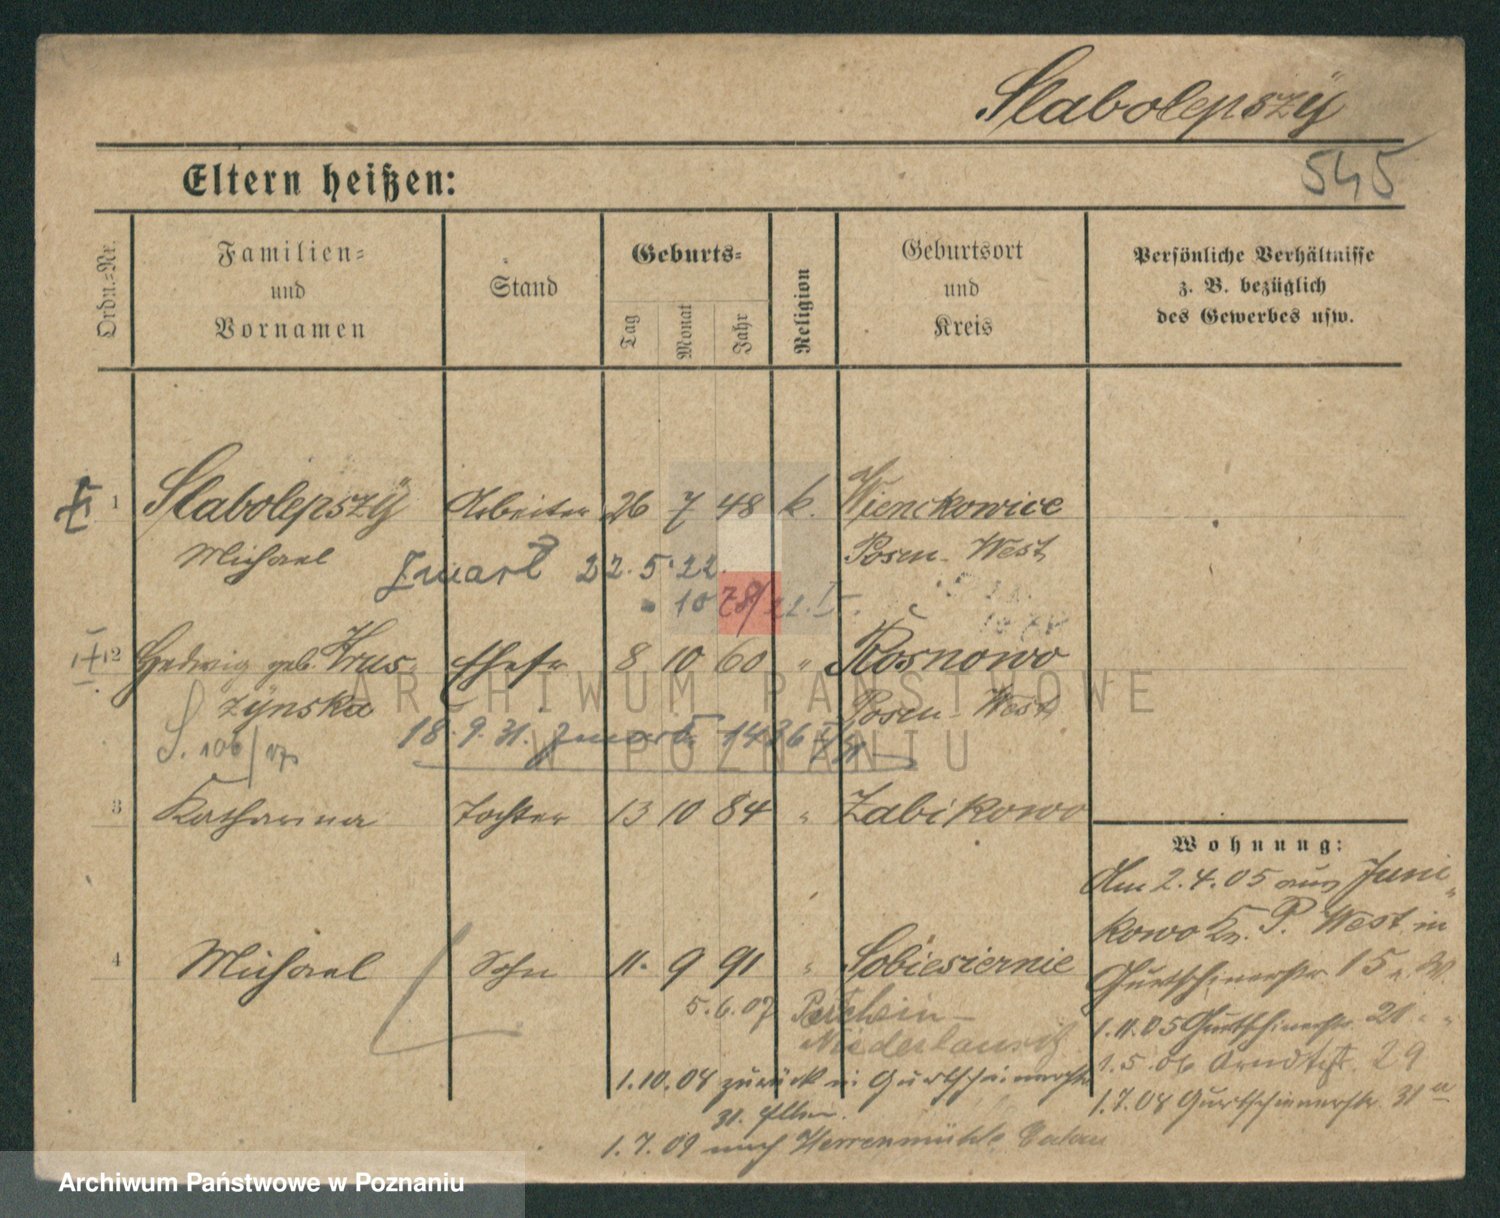 Slabolepszÿ
545
Eltern heißen:
Ordn.-Nr.
Familien-
und
Vornamen
Stand
Geburts-
Tag
Monat
Jahr
Religion
Geburtsort
und
Kreis
Persönliche Verhältnisse
z. B. bezüglich
des Gewerbes usw.
1 Slabolepszÿ Arbeiter 26 7 48 k. Wienckowice
Michael Posen-West
Zmarł 22.5.22.
10 78/22.
2 Hedwig geb. Krus- Ehefr 8 10 60 " Rosnowo
zÿnska Posen-West
S. 106/17
18.9.31. Zmarła 1426
3 Katharina Tochter 13 10 84 " Zabikowo
4 Michael Sohn 11. 9 91 " Sobiesiernie
5.6.07
Niederlausitz
1.10.08 zurück in Gurtschinerstr
31. Eltern.
1.7.09 nach Herrenmühle
Wohnung:
Am 2.4.05 aus Juni-
kowo Kr. P. West in
Gurtschinerstr 15
1.11.05 Gurtschinerstr. 21 " "
1.5.06 Arndtstr. 29
1.7.08 Gurtschinerstr. 31
ARCHIWUM PAŃSTWOWE
W POZNANIU
Archiwum Państwowe w Poznaniu